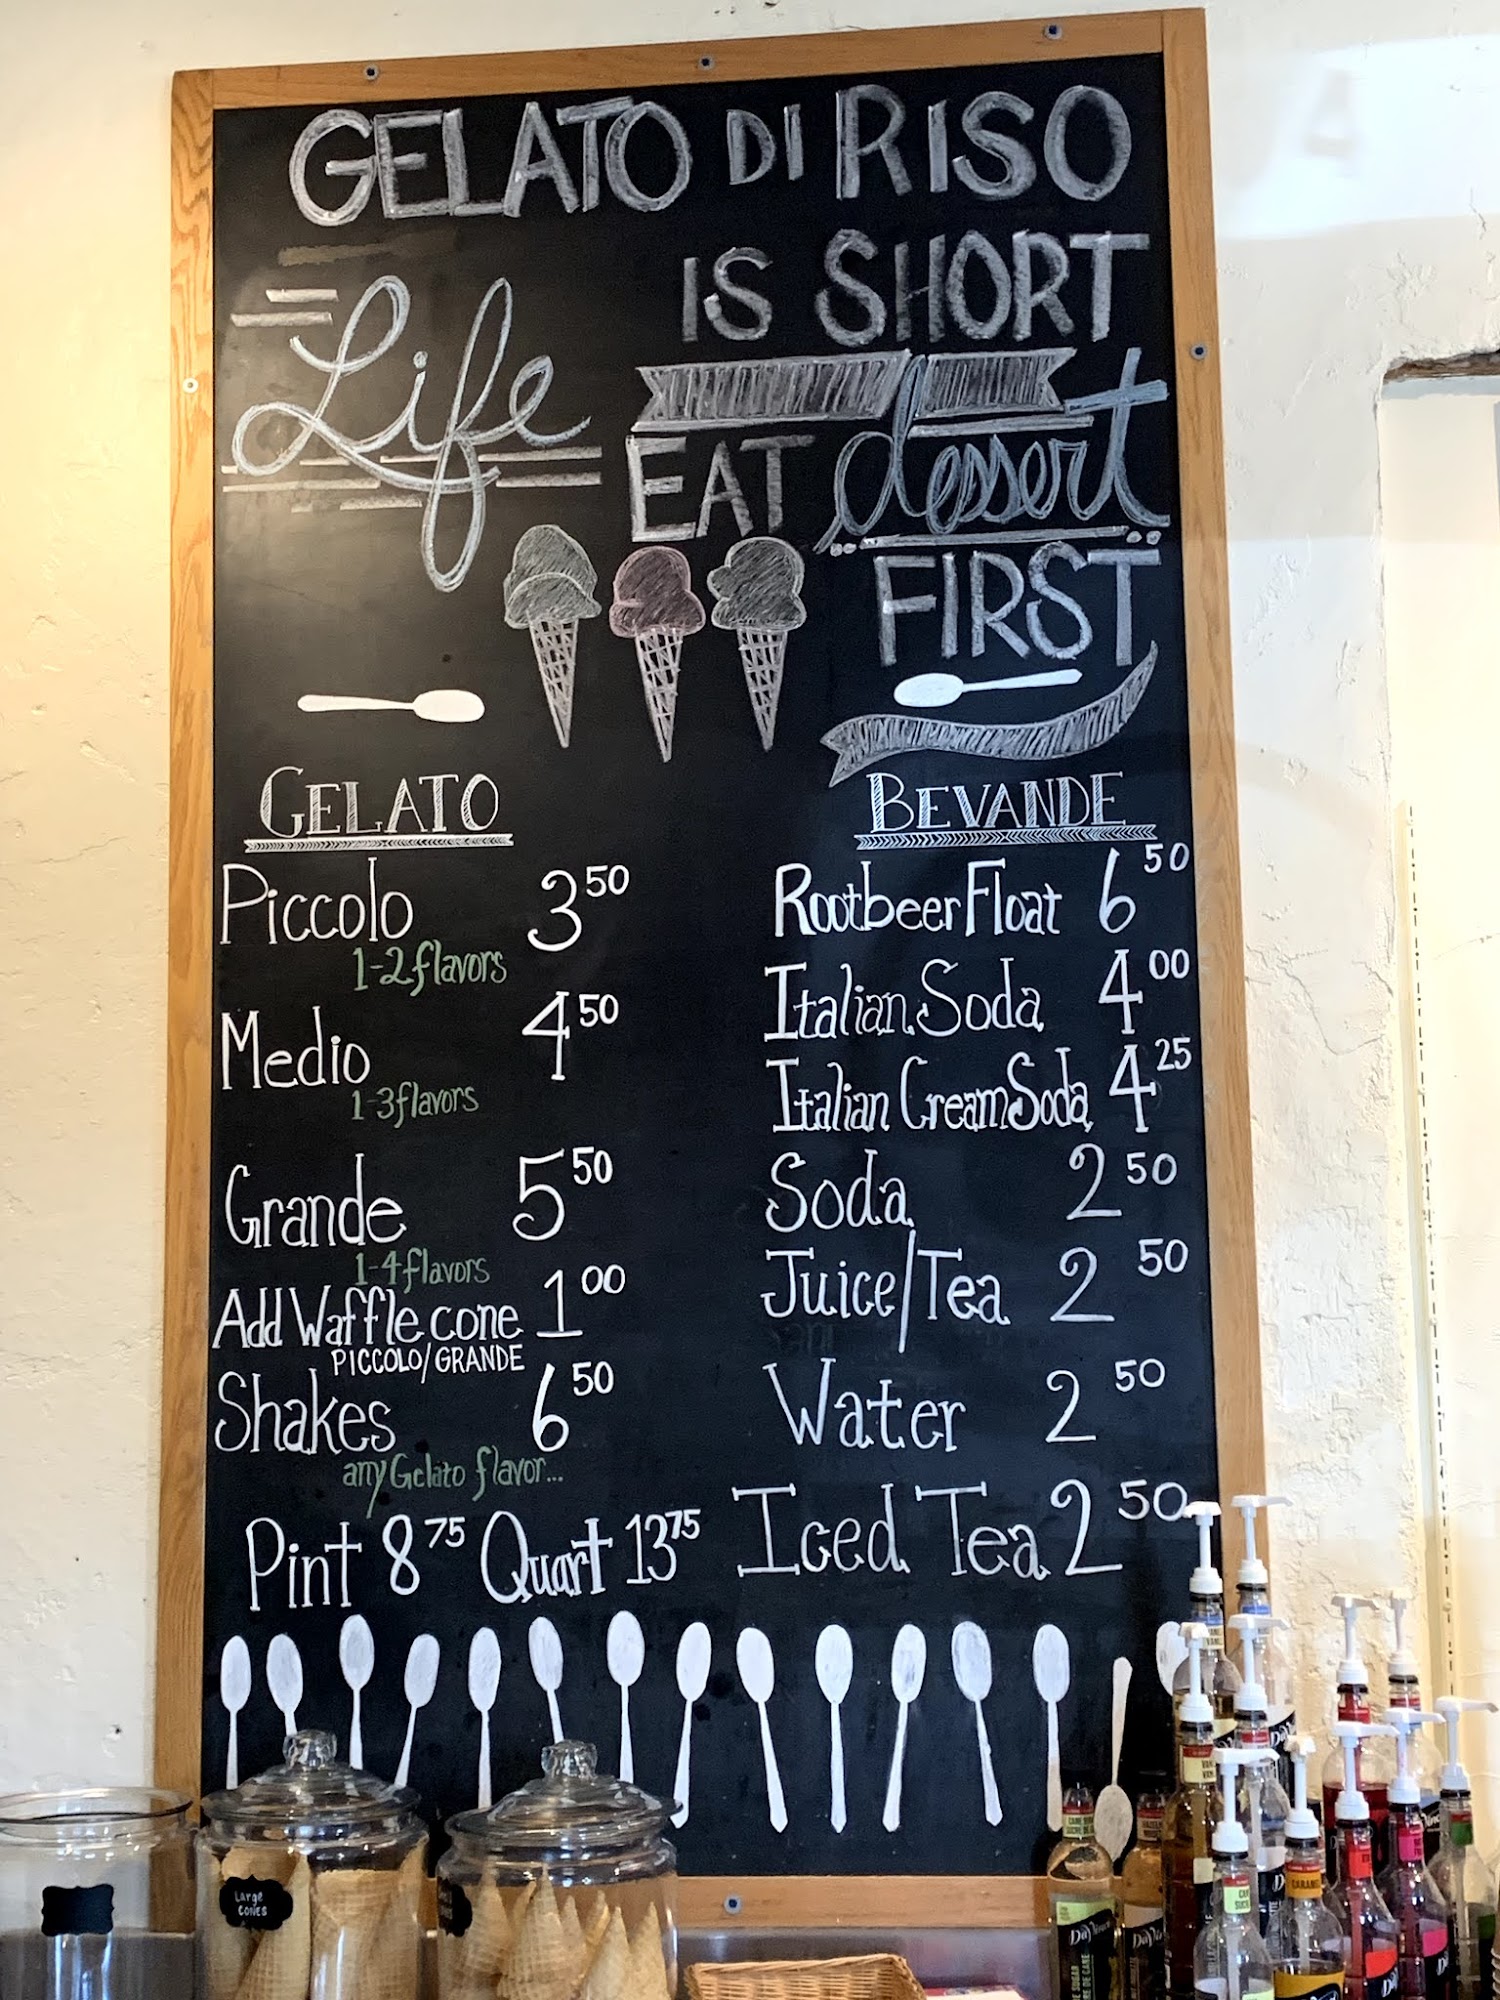 GELATO DI RISO
Life IS SHORT
EAT dessert
FIRST
GELATO
Piccolo 3 50
1-2 flavors
Medio 4 50
1-3 flavors
Grande 5 50
1-4 flavors
Add Waffle cone 1 00
PICCOLO/GRANDE
Shakes 6 50
any Gelato flavor...
Pint 8 75 Quart 13 75
BEVANDE
Rootbeer Float 6 50
Italian Soda 4 00
Italian Cream Soda 4 25
Soda 2 50
Juice/Tea 2 50
Water 2 50
Iced Tea 2 50
Large
CONES
DaVinci
CARAMEL